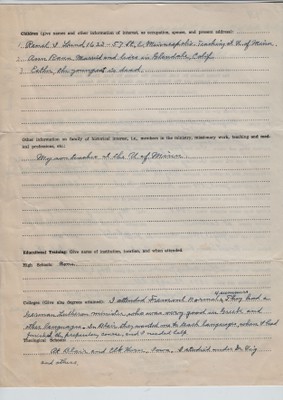 Children (give names and other information of interest, as occupation, spouse, and present address):
1. 1622 - 5 St. S. E. Minneapolis. Teaching at U. of Minn.
2. Married and lives in Glendale, Calif.
3. Esther, the youngest is dead.
Other information on family of historical interest, i.e., members in the ministry, missionary work, teaching and medical professions, etc.:
My son teaches at the U of Minn.
Educational Training: Give name of institution, location, and when attended.
High Schools: None.
Colleges (Give also degrees attained): I attended Fremont Normal. They had a
German Lutheran minister who was very good in Greek and
other languages. In Blair they wanted me to teach languages, where I had
finished the preparatory course, and I needed help
Theological Schools:
At Blair and Elk Horn, Iowa. I studied under Dr. Vig
and others.